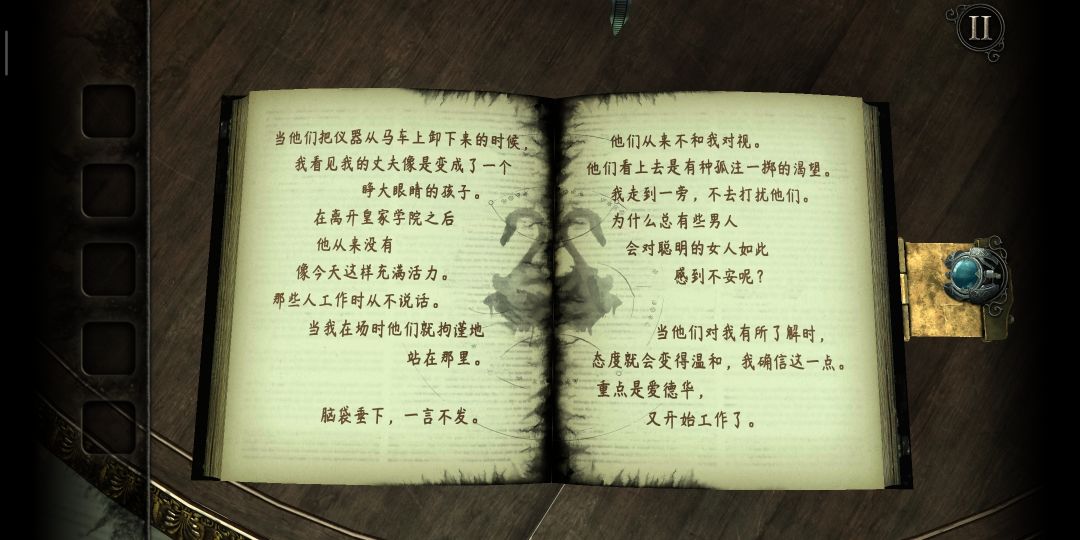 当他们把仪器从马车上卸下来的时候，
我看见我的丈夫像是变成了一个
睁大眼睛的孩子。
在离开皇家学院之后
他从来没有
像今天这样充满活力。
那些人工作时从不说话。
当我在场时他们就拘谨地
站在那里。
脑袋垂下，一言不发。
他们从来不和我对视。
他们看上去是有种孤注一掷的渴望。
我走到一旁，不去打扰他们。
为什么总有些男人
会对聪明的女人如此
感到不安呢？
当他们对我有所了解时，
态度就会变得温和，我确信这一点。
重点是爱德华，
又开始工作了。
II